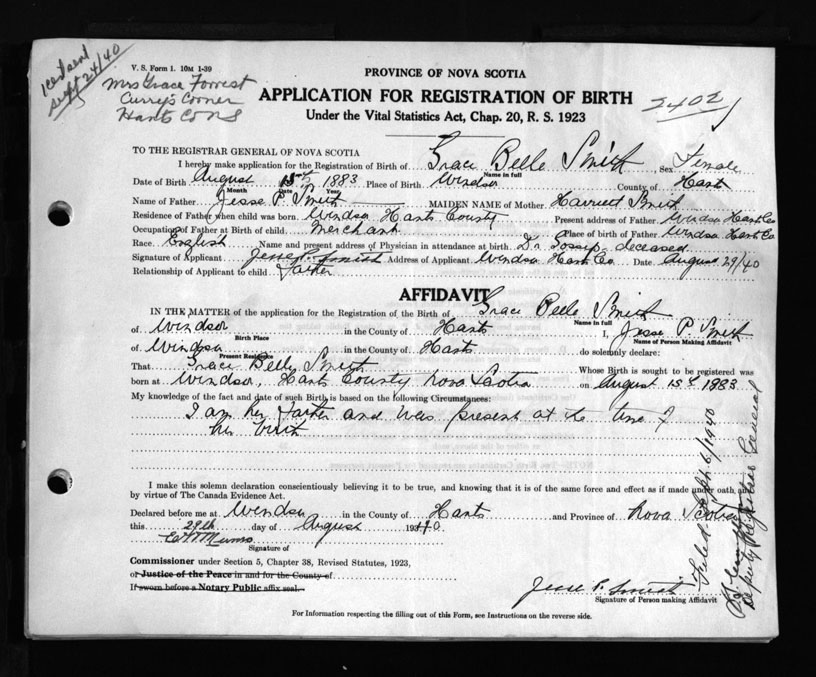 V. S. Form 1. 10M 1-39
sept 24/40
Mrs Grace Forrest
Curry's Corner
Hants Co NS
2402
PROVINCE OF NOVA SCOTIA
APPLICATION FOR REGISTRATION OF BIRTH
Under the Vital Statistics Act, Chap. 20, R. S. 1923
TO THE REGISTRAR GENERAL OF NOVA SCOTIA
I hereby make application for the Registration of Birth of Grace Belle Smith, Sex Female
Name in full
Date of Birth August 1883 Place of Birth Windsor County of Hants
Month Date Year
Name of Father Jesse P Smith MAIDEN NAME of Mother Harriett Smith
Residence of Father when child was born. Windsor Hants County Present address of Father Windsor Hants Co
Occupation of Father at Birth of child. Merchant Place of birth of Father Windsor Hants Co.
Race. English Name and present address of Physician in attendance at birth. Dr. Gossip, deceased
Signature of Applicant Jesse P. Smith Address of Applicant Windsor Hants Co. Date August 29/40
Relationship of Applicant to child father
AFFIDAVIT
IN THE MATTER of the application for the Registration of the Birth of Grace Belle Smith
Name in full
of Windsor in the County of Hants I, Jesse P. Smith
Birth Place Name of Person Making Affidavit
of Windsor in the County of Hants do solemnly declare:
Present Residence
That Grace Belle Smith Whose Birth is sought to be registered was
born at Windsor, Hants County Nova Scotia on August 1st 1883
My knowledge of the fact and date of such Birth is based on the following Circumstances:
I am her father and was present at the time of
her birth
I make this solemn declaration conscientiously believing it to be true, and knowing that it is of the same force and effect as if made under oath, and
by virtue of The Canada Evidence Act.
Declared before me at Windsor in the County of Hants and Province of Nova Scotia
this 29th day of August 1940
Signature of
Commissioner under Section 5, Chapter 38, Revised Statutes, 1923,
or Justice of the Peace in and for the County of
If sworn before a Notary Public affix seal.
Jesse P. Smith
Signature of Person making Affidavit
For Information respecting the filling out of this Form, see Instructions on the reverse side.
Filed Sept 6/1940
Deputy Registrar General